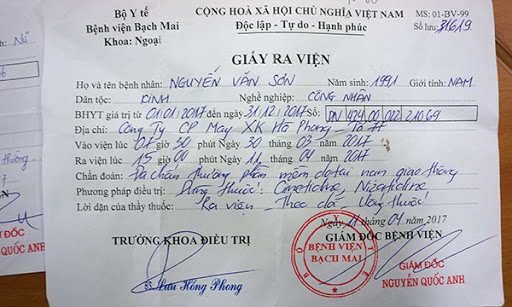 Bộ Y tế
Bệnh viện Bạch Mai
Khoa: Ngoại
CỘNG HOÀ XÃ HỘI CHỦ NGHĨA VIỆT NAM
Độc lập - Tự do - Hạnh phúc
MS: 01-BV-99
Số lưu: 31619
GIẤY RA VIỆN
Họ và tên bệnh nhân: NGUYỄN VĂN SƠN Năm sinh: 1991 Giới tính: NAM
Dân tộc: KINH Nghề nghiệp: CÔNG NHÂN
BHYT giá trị từ 01.01.2017 đến 31.12.2017 Số: DN 424 00 002 21069
Địa chỉ: Công Ty CP May XK Hà Phong
Vào viện lúc 07 giờ 30 Phút Ngày 30 tháng 03 năm 2017
Ra viện lúc 15 giờ 00 phút Ngày 11 tháng 04 năm 2017
Chẩn đoán: Đa chấn thương phần mềm do tai nạn giao thông
Phương pháp điều trị: Dùng thuốc: Cimetidine, Nizatidine
Lời dặn của thầy thuốc: Ra viện - Theo dõi - Uống thuốc
Ngày 11 tháng 04 năm 2017
TRƯỞNG KHOA ĐIỀU TRỊ
GIÁM ĐỐC BỆNH VIỆN
BỆNH VIỆN
BẠCH MAI
BS Lưu Hồng Phong
GIÁM ĐỐC
NGUYỄN QUỐC ANH
GIÁM ĐỐC
NGUYỄN QUỐC ANH